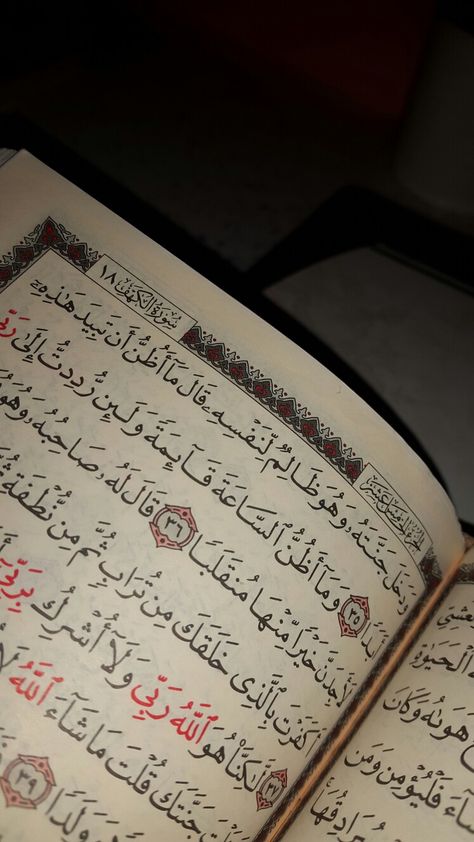 سُورَةُ الكَهْفِ ١٨
الجُزْءُ الخَامِسَ عَشَرَ
وَدَخَلَ جَنَّتَهُۥ وَهُوَ ظَالِمٌ لِّنَفْسِهِۦ قَالَ مَآ أَظُنُّ أَن تَبِيدَ هَٰذِهِۦٓ
أَبَدًا ٣٥ وَمَآ أَظُنُّ ٱلسَّاعَةَ قَآئِمَةً وَلَئِن رُّدِدتُّ إِلَىٰ رَبِّى
لَأَجِدَنَّ خَيْرًا مِّنْهَا مُنقَلَبًا ٣٦ قَالَ لَهُۥ صَاحِبُهُۥ وَهُوَ
أَكَفَرْتَ بِٱلَّذِى خَلَقَكَ مِن تُرَابٍ ثُمَّ مِن نُّطْفَةٍ
٣٧ لَّٰكِنَّا۠ هُوَ ٱللَّهُ رَبِّى وَلَآ أُشْرِكُ بِرَبِّىٓ
جَنَّتَكَ قُلْتَ مَا شَآءَ ٱللَّهُ لَا
وَوَلَدًا ٣٩
ٱلْحَيَوٰةِ
هَوَىٰهُ وَكَانَ
فَلْيُؤْمِن وَمَن
سُرَادِقُهَا